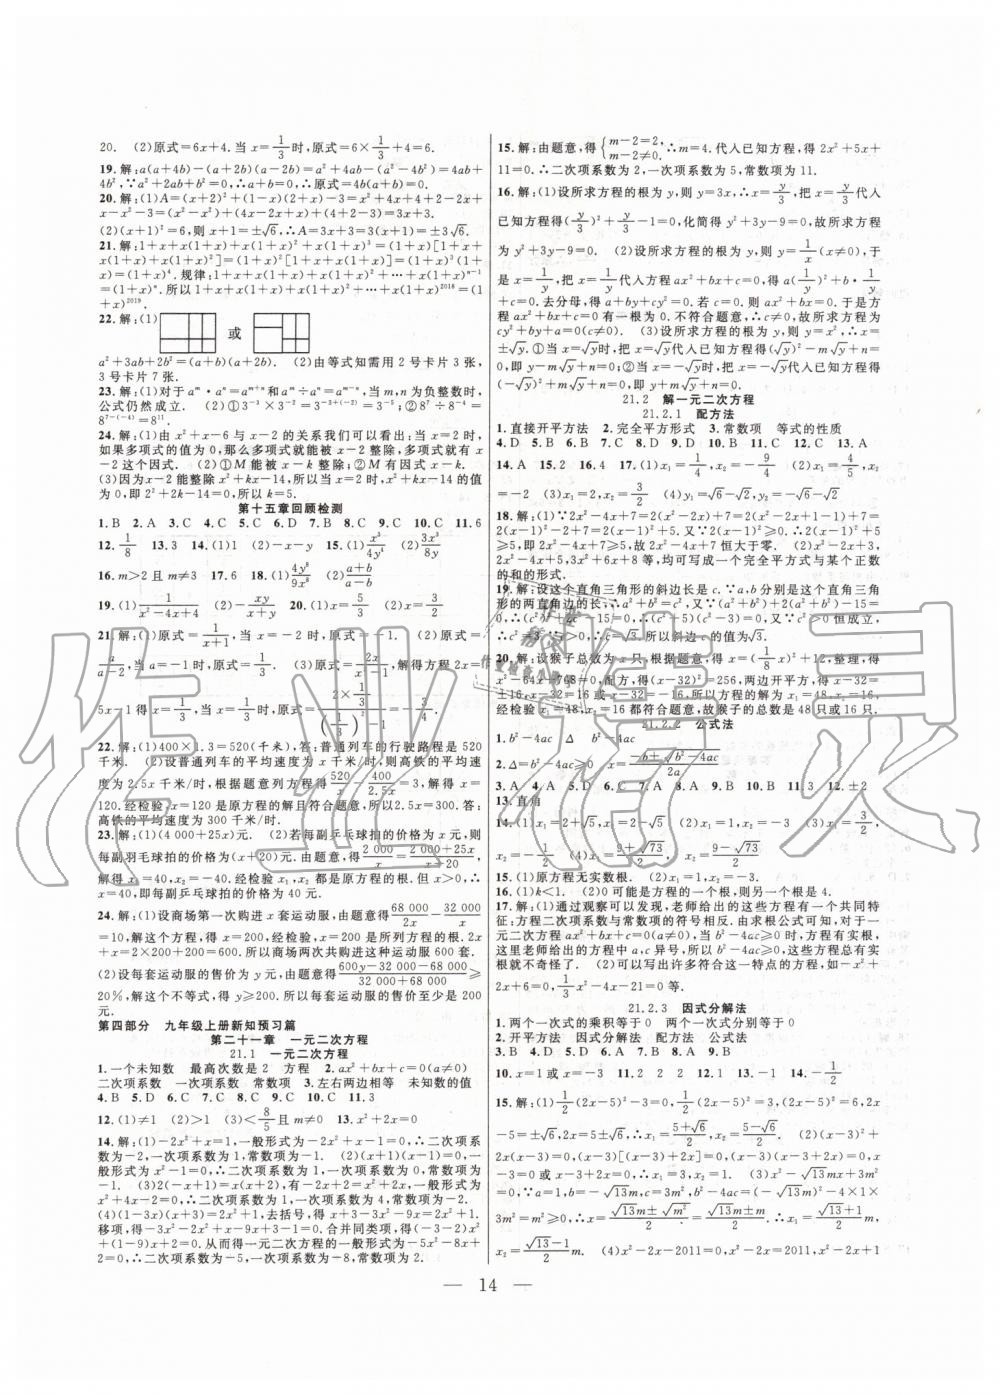 20. (2)原式=6x+4.当x=1/3时,原式=6×1/3+4=6.
19.解:a(a+4b)-(a+2b)(a-2b)=a²+4ab-(a²-4b²)=4ab+
4b²,∵a²+2ab+b²=0,∴a+b=0,∴原式=4b(a+b)=0.
20.解:(1)A=(x+2)²+(1-x)(2+x)-3=x²+4x+4+2-2x+
x-x²-3=(x²-x²)+(4x-2x+x)+(4+2-3)=3x+3.
(2)(x+1)²=6,则x+1=±√6,∴A=3x+3=3(x+1)=±3√6.
21.解:1+x+x(1+x)+x(1+x)²+x(1+x)³=(1+x)[1+x+
x(1+x)+x(1+x)²]=(1+x)²[1+x+x(1+x)]=(1+x)³(1+x)
=(1+x)⁴.规律:1+x+x(1+x)+x(1+x)²+⋯+x(1+x)ⁿ⁻¹
=(1+x)ⁿ.所以1+x+x(1+x)+x(1+x)²+⋯+x(1+x)²⁰¹⁸=(1
+x)²⁰¹⁹.
22.解:(1) 或
a²+3ab+2b²=(a+b)(a+2b). (2)由等式知需用2号卡片3张,
3号卡片7张.
23.解:(1)对于aᵐ·aⁿ=aᵐ⁺ⁿ和aᵐ÷aⁿ=aᵐ⁻ⁿ,当m,n为负整数时,
公式仍然成立. (2)①3⁻³×3⁻²=3⁻³⁺⁽⁻²⁾=3⁻⁵;②8⁷÷8⁻⁴=
8⁷⁻⁽⁻⁴⁾=8¹¹.
24.解:(1)由x²+x-6与x-2的关系我们可以看出:当x=2时,
如果多项式的值为0,那么多项式就能被x-2整除,多项式就有x
-2这个因式. (2)①M能被x-k整除;②M能被x-k整除.
(3)因为x-2能整除x²+kx-14,所以当x-2=0时,x²+kx-14的值
为0,即2²+2k-14=0,所以k=5.
第十五章回顾检测
1.B 2.A 3.C 4.C 5.C 6.A 7.C 8.B 9.D 10.C 11.6
12.1/8 13.3 14.(1)1 (2)-x-y 15.(1)x³/4y⁴ (2)3x³/8y
16.m>2且m≠3 17.6 18.(1)4y⁸/9x⁸ (2)(a+b)/(a-b)
19.(1)1/(x²-4x+4) (2)-xy/(x+y) 20.(1)x=1/3 (2)x=1
21.解:(1)原式=1/(x+1),当x=-2时,原式=-1. (2)原式=
a/(a-2),当a=-1时,原式=1/3. (3)原式=2x/(x-1),解得方程2x=
5x-1得x=1/3,当x=1/3时,原式=
22.解:(1)400×1.3=520(千米).答:普通列车的行驶路程是520
千米. (2)设普通列车的平均速度为x千米/时,则高铁的平均速
度为2.5x千米/时,根据题意列方程得520/x-400/2.5x=3,解得x=
120.经检验x=120是原方程的解且符合题意,所以2.5x=300.答:
高铁的平均速度为300千米/时.
23.解:(1)(4 000+25x)元. (2)若每副乒乓球拍的价格为x元,则
每副羽毛球拍的价格为(x+20)元.由题意,得2 000/x=(2 000+25x)/(x+20),
解得x₁=40,x₂=-40.经检验x=±40都是原方程的根.但x>0,∴
x=40,即每副乒乓球拍的价格为40元.
24.解:(1)设商场第一次购进x套运动服,由题意得68 000/2x-32 000/x
=10,解这个方程,得x=200,经检验,x=200是所列方程的根.2x
+x=2×200+200=600.所以商场两次共购进这种运动服600套.
(2)设每套运动服的售价为y元,由题意得(600y-32 000-68 000)/(32 000+68 000)≥
20%,解这个不等式,得y≥200.所以每套运动服的售价至少是200元.
第四部分 九年级上册新知预习篇
第二十一章 一元二次方程
21.1 一元二次方程
1.一个未知数 最高次数是2 方程 2.ax²+bx+c=0(a≠0)
二次项系数 一次项系数 常数项 3.左右两边相等 未知数的值
4.B 5.D 6.C 7.C 8.D 9.C 10.C 11.3
12.(1)≠1 (2)>1 (3)<8/5且m≠0 13.x²+2x=0
14.解:(1)-2x²+x=1,一般形式为-2x²+x-1=0,∴二次项系
数为-2,一次项系数为1,常数项为-1. (2)(x+1)(x-1)=0,一
般形式为x²-1=0,∴二次项系数为1,一次项系数为0,常数项为
-1. (3)2(-x+1)=x(x+2),有-2x+2=x²+2x,一般形式为
x²+4x-2=0,∴二次项系数为1,一次项系数为4,常数项为-2.
(4)(1-3x)(x+3)=2x²+1,去括号,得x+3-3x²-9x=2x²+1.
移项,得-3x²-2x²+x-9x+3-1=0.合并同类项,得(-3-2)x²
+(1-9)x+2=0.从而得一元二次方程的一般形式为-5x²-8x+
2=0,∴二次项系数为-5,一次项系数为-8,常数项为2.
15.解:由题意,得{m-2=2,m-2≠0.∴m=4.代入已知方程,得2x²+5x+
11=0.∴二次项系数为2,一次项系数为5,常数项为11.
16.解:(1)设所求方程的根为y,则y=3x,∴x=y/3,把x=y/3代入
已知方程得(y/3)²+y/3-1=0,化简得y²+3y-9=0,故所求方程
为y²+3y-9=0. (2)设所求方程的根为y,则y=1/x(x≠0),于
是x=1/y,把x=1/y代入方程ax²+bx+c=0,得a(1/y)²+b·1/y
+c=0,去分母,得a+by+cy²=0.若c=0,则ax²+bx=0.于是方
程ax²+bx+c=0有一根为0.不符合题意,∴c≠0.故所求方程为
cy²+by+a=0(c≠0). (3)设所求方程的根为y,则y=x²,∴x=
±√y.①当x=√y时,把x=√y代入已知方程得(√y)²-m√y+n
=0,即y-m√y+n=0;②当x=-√y时,把x=-√y代入已知方程得
(-√y)²+m√y+n=0,即y+m√y+n=0.
21.2 解一元二次方程
21.2.1 配方法
1.直接开平方法 2.完全平方形式 3.常数项 等式的性质
4.D 5.B 6.C 7.A 8.D 9.D 10.B 11.D 12.C 13.A
14.A 15.2 16.4 17.(1)x₁=3/4,x₂=-9/4 (2)x₁=4/5,x₂
=-2 (3)x₁=x₂=2 (4)x₁=√6-√2,x₂=-√6-√2
18.解:(1)∵2x²-4x+7=2(x²-2x)+7=2(x²-2x+1-1)+7=
2(x-1)²-2+7=2(x-1)²+5.又∵2(x-1)²≥0,∴2(x-1)²+5
≥5,即2x²-4x+7≥5,故2x²-4x+7恒大于零. (2)x²-2x+3,
2x²-2x+5,3x²+6x+8等,均可写成一个完全平方式与某个正数
的和的形式.
19.解:设这个直角三角形的斜边长是c.∵a,b分别是这个直角三角
形的两直角边的长,∴a²+b²=c²,又∵(a²+b²)²+2(a²+b²)-15=
0,∴(c²)²+2c²-15=0,∴(c²-3)(c²+5)=0.又∵a²+b²>0恒成立,
∴c²=3或c²=-5.∵c>0,∴c=√3,所以斜边c的值为√3.
20.解:设猴子总数为x只,根据题意,得x=(1/8x)²+12,整理,得
x²-64x=-768,配方,得(x-32)²=256,两边开平方,得x-32=
±16.∴x-32=16或x-32=-16,解这个方程为x₁=48,x₂=16,
经检验,x₁=48,x₂=16都符合题意,故猴子的总数是48只或16只.
21.2.2 公式法
1.b²-4ac Δ b²-4ac
2.Δ=b²-4ac≥0 x=(-b±√(b²-4ac))/2a
3.A 4.A 5.D 6.D 7.D 8.B 9.C 10.C 11.3 12.±2
13.直角
14.(1)x₁=2+√5,x₂=2-√5 (2)x₁=x₂=1 (3)x₁=3/2,
x₂=-1/2 (4)x₁=(9+√73)/2,x₂=(9-√73)/2
15.(1)原方程无实数根. (2)x₁=1,x₂=-3.
16.(1)k<1. (2)0可能是方程的一个根,则另一个根是4.
17.解:(1)通过观察可以发现,老师给出的这些方程有一个共同特
征:方程二次项系数与常数项的符号相反.由求根公式可知,对于一
元二次方程ax²+bx+c=0(a≠0),当b²-4ac≥0时,方程有实根,
这里老师给出的方程中a,c异号,所以b²-4ac≥0,方程总有实
根就不奇怪了. (2)可以写出许多符合这一特点的方程,如-x²+
x+1=0,1/3x²-5x-2=0等.
21.2.3 因式分解法
1.两个一次式的乘积等于0 两个一次式分别等于0
2.开平方法 因式分解法 配方法 公式法
3.B 4.D 5.A 6.A 7.B 8.A 9.B
10.x=1或x=-3 11.2 2 12.1 13.-1 14.-1/2
15.解:(1)1/2(2x-5)²-3=0,1/2(2x-5)²=3,(2x-5)²=6,2x
-5=±√6,2x=5±√6,∴x₁=(5+√6)/2,x₂=(5-√6)/2. (2)(x-3)²+
2x(x-3)=0,(x-3)[(x-3)+2x]=0,(x-3)(3x-3)=0,3x-3=
0或x-3=0,∴x₁=1,x₂=3. (3)x²-√13mx+3m²=
0(m≥0),∵a=1,b=-√13m,c=3m²,b²-4ac=(-√13m)²-4×1×
3m²=m²≥0,∴x=(√13m±√m²)/2=(√13m±m)/2. ∴x₁=(√13+1)/2m,
x₂=(√13-1)/2m. (4)x²-2x-2011=0,x²-2x=2011,x²-2x+1
14